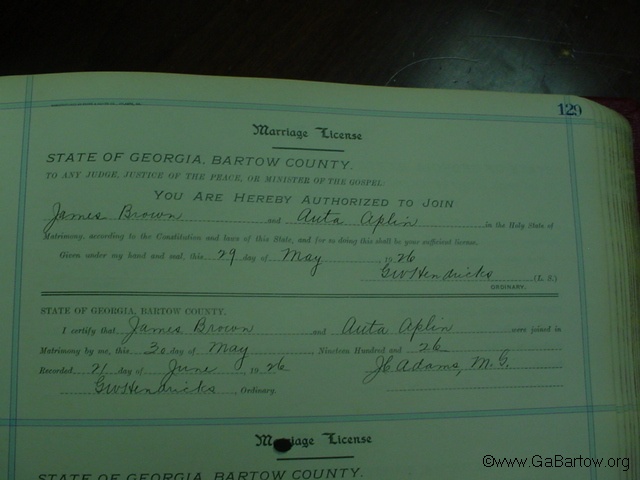 129
Marriage License
STATE OF GEORGIA, BARTOW COUNTY.
TO ANY JUDGE, JUSTICE OF THE PEACE, OR MINISTER OF THE GOSPEL:
YOU ARE HEREBY AUTHORIZED TO JOIN
James Brown and Auta Aplin in the Holy State of
Matrimony, according to the Constitution and laws of this State, and for so doing this shall be your sufficient license.
Given under my hand and seal, this 29 day of May 1926
GW Hendricks (L. S.)
ORDINARY.
STATE OF GEORGIA, BARTOW COUNTY.
I certify that James Brown and Auta Aplin were joined in
Matrimony by me, this 30 day of May Nineteen Hundred and 26
Recorded 21 day of June, 1926 JC Adams, M.G.
GW Hendricks, Ordinary.
Marriage License
STATE OF GEORGIA, BARTOW COUNTY.
©www.GaBartow.org